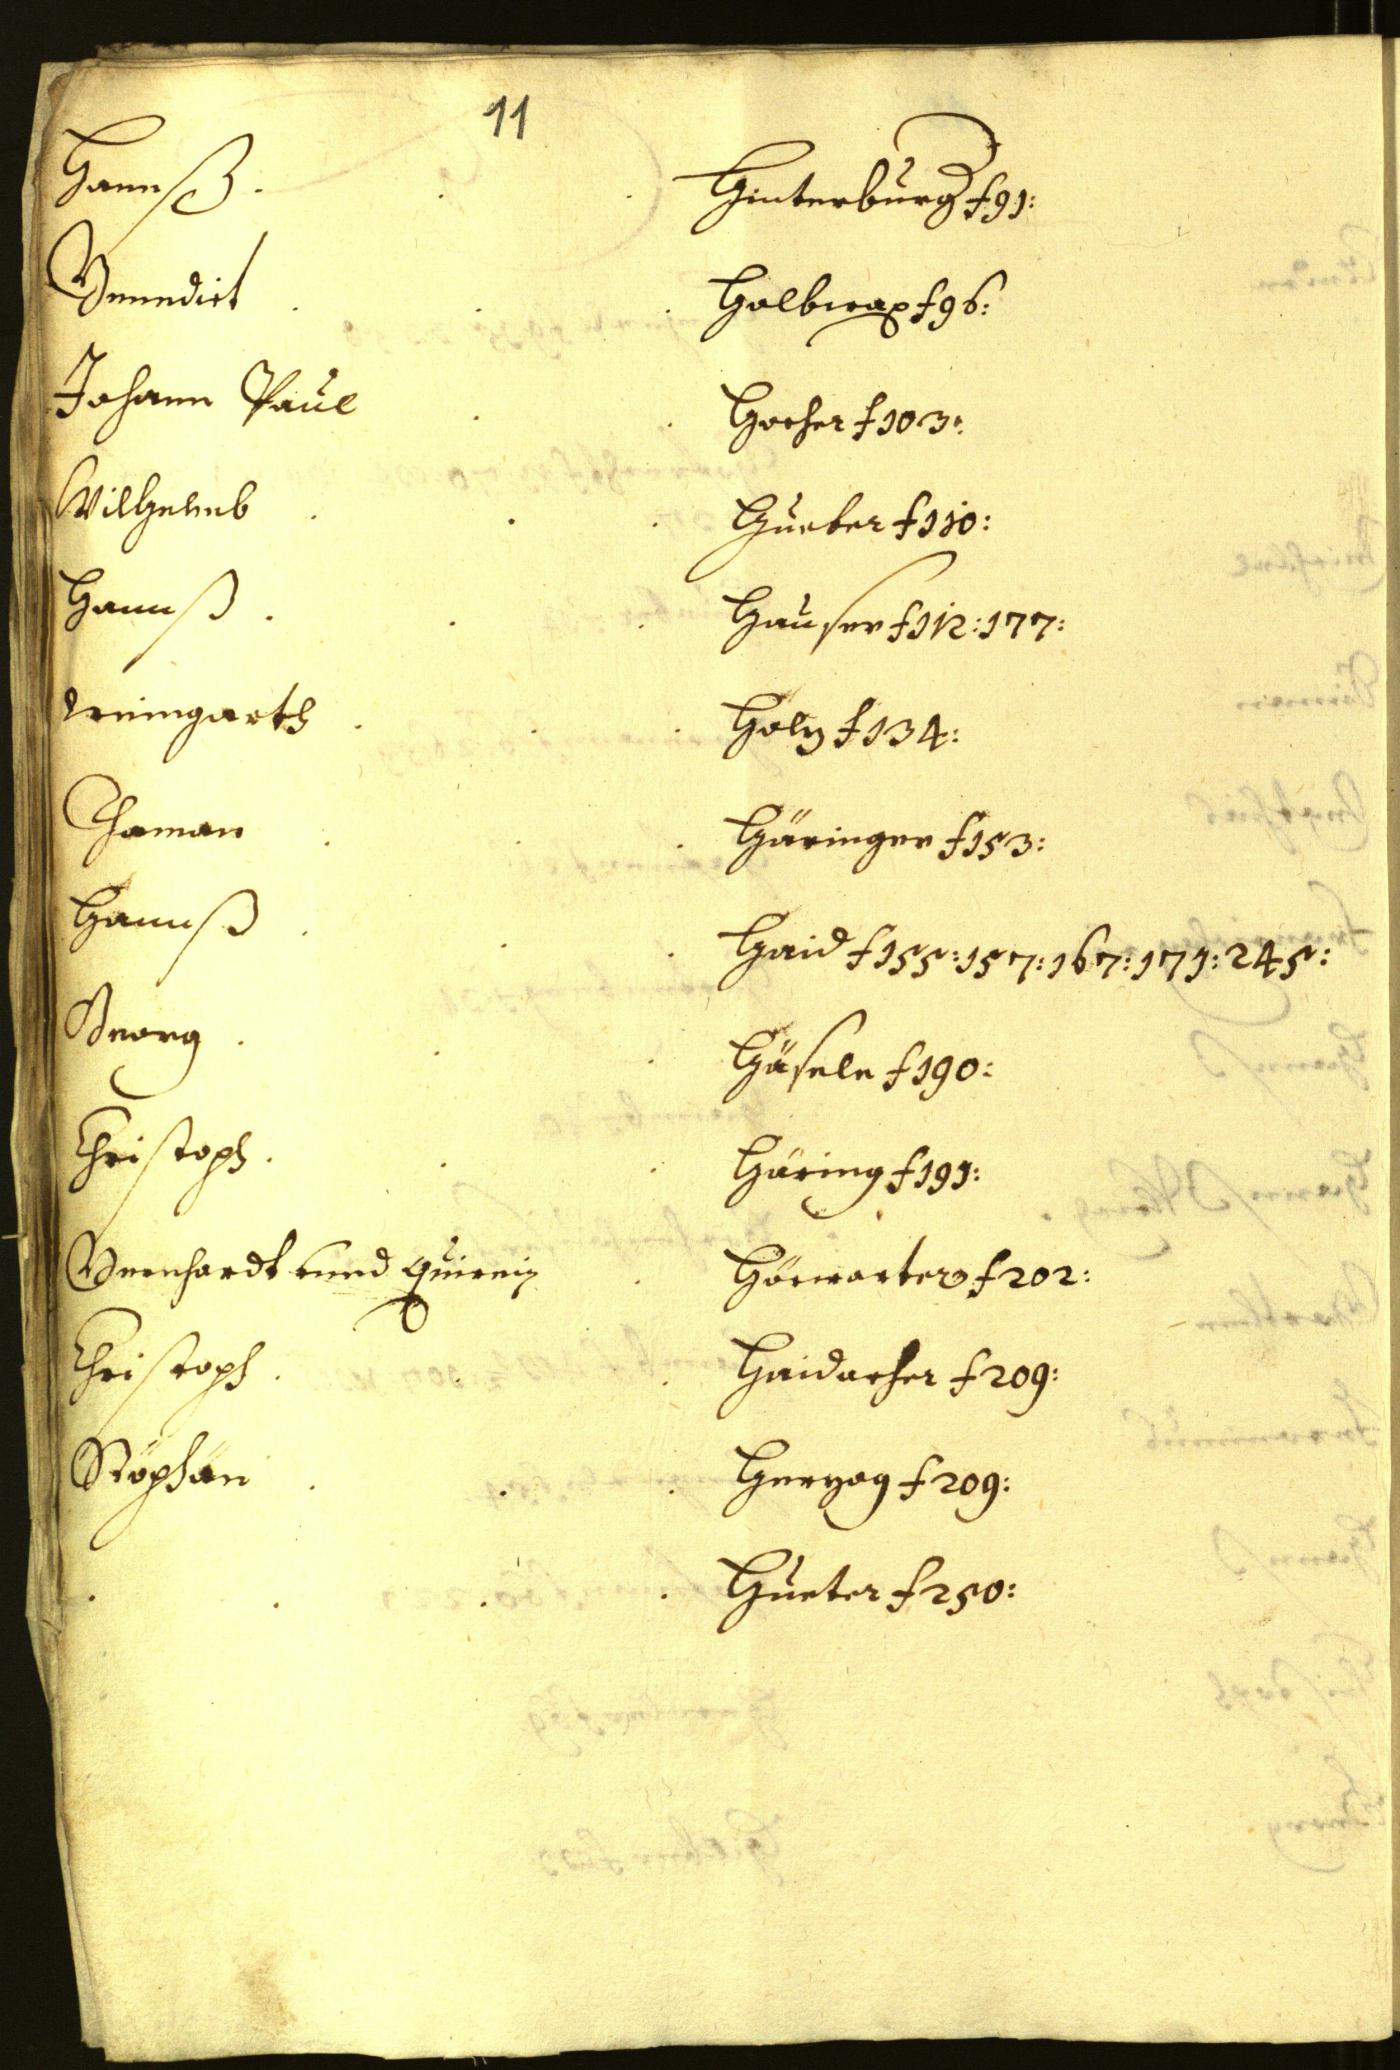 11
Hannß . . . Hinterburg f 91:
Benedict . . . Holbwax f 96:
Johann Paul . . Hocher f 103:
Wilhelmb . . . Hueber f 110:
Hannß . . . Hauser f 112: 177:
. . . Holz f 134:
Thaman . . . Häringer f 153:
Hannß . . . Haid f 155: 157: 167: 171: 245:
Georg . . . Häsele f 190:
Christoph . . . Häring f 191:
Bernhardt vnd Quirein . Hörwarter f 202:
Christoph . . . Haidacher f 209:
Stöphän . . . Herzog f 209:
. . . . Hueter f 250: